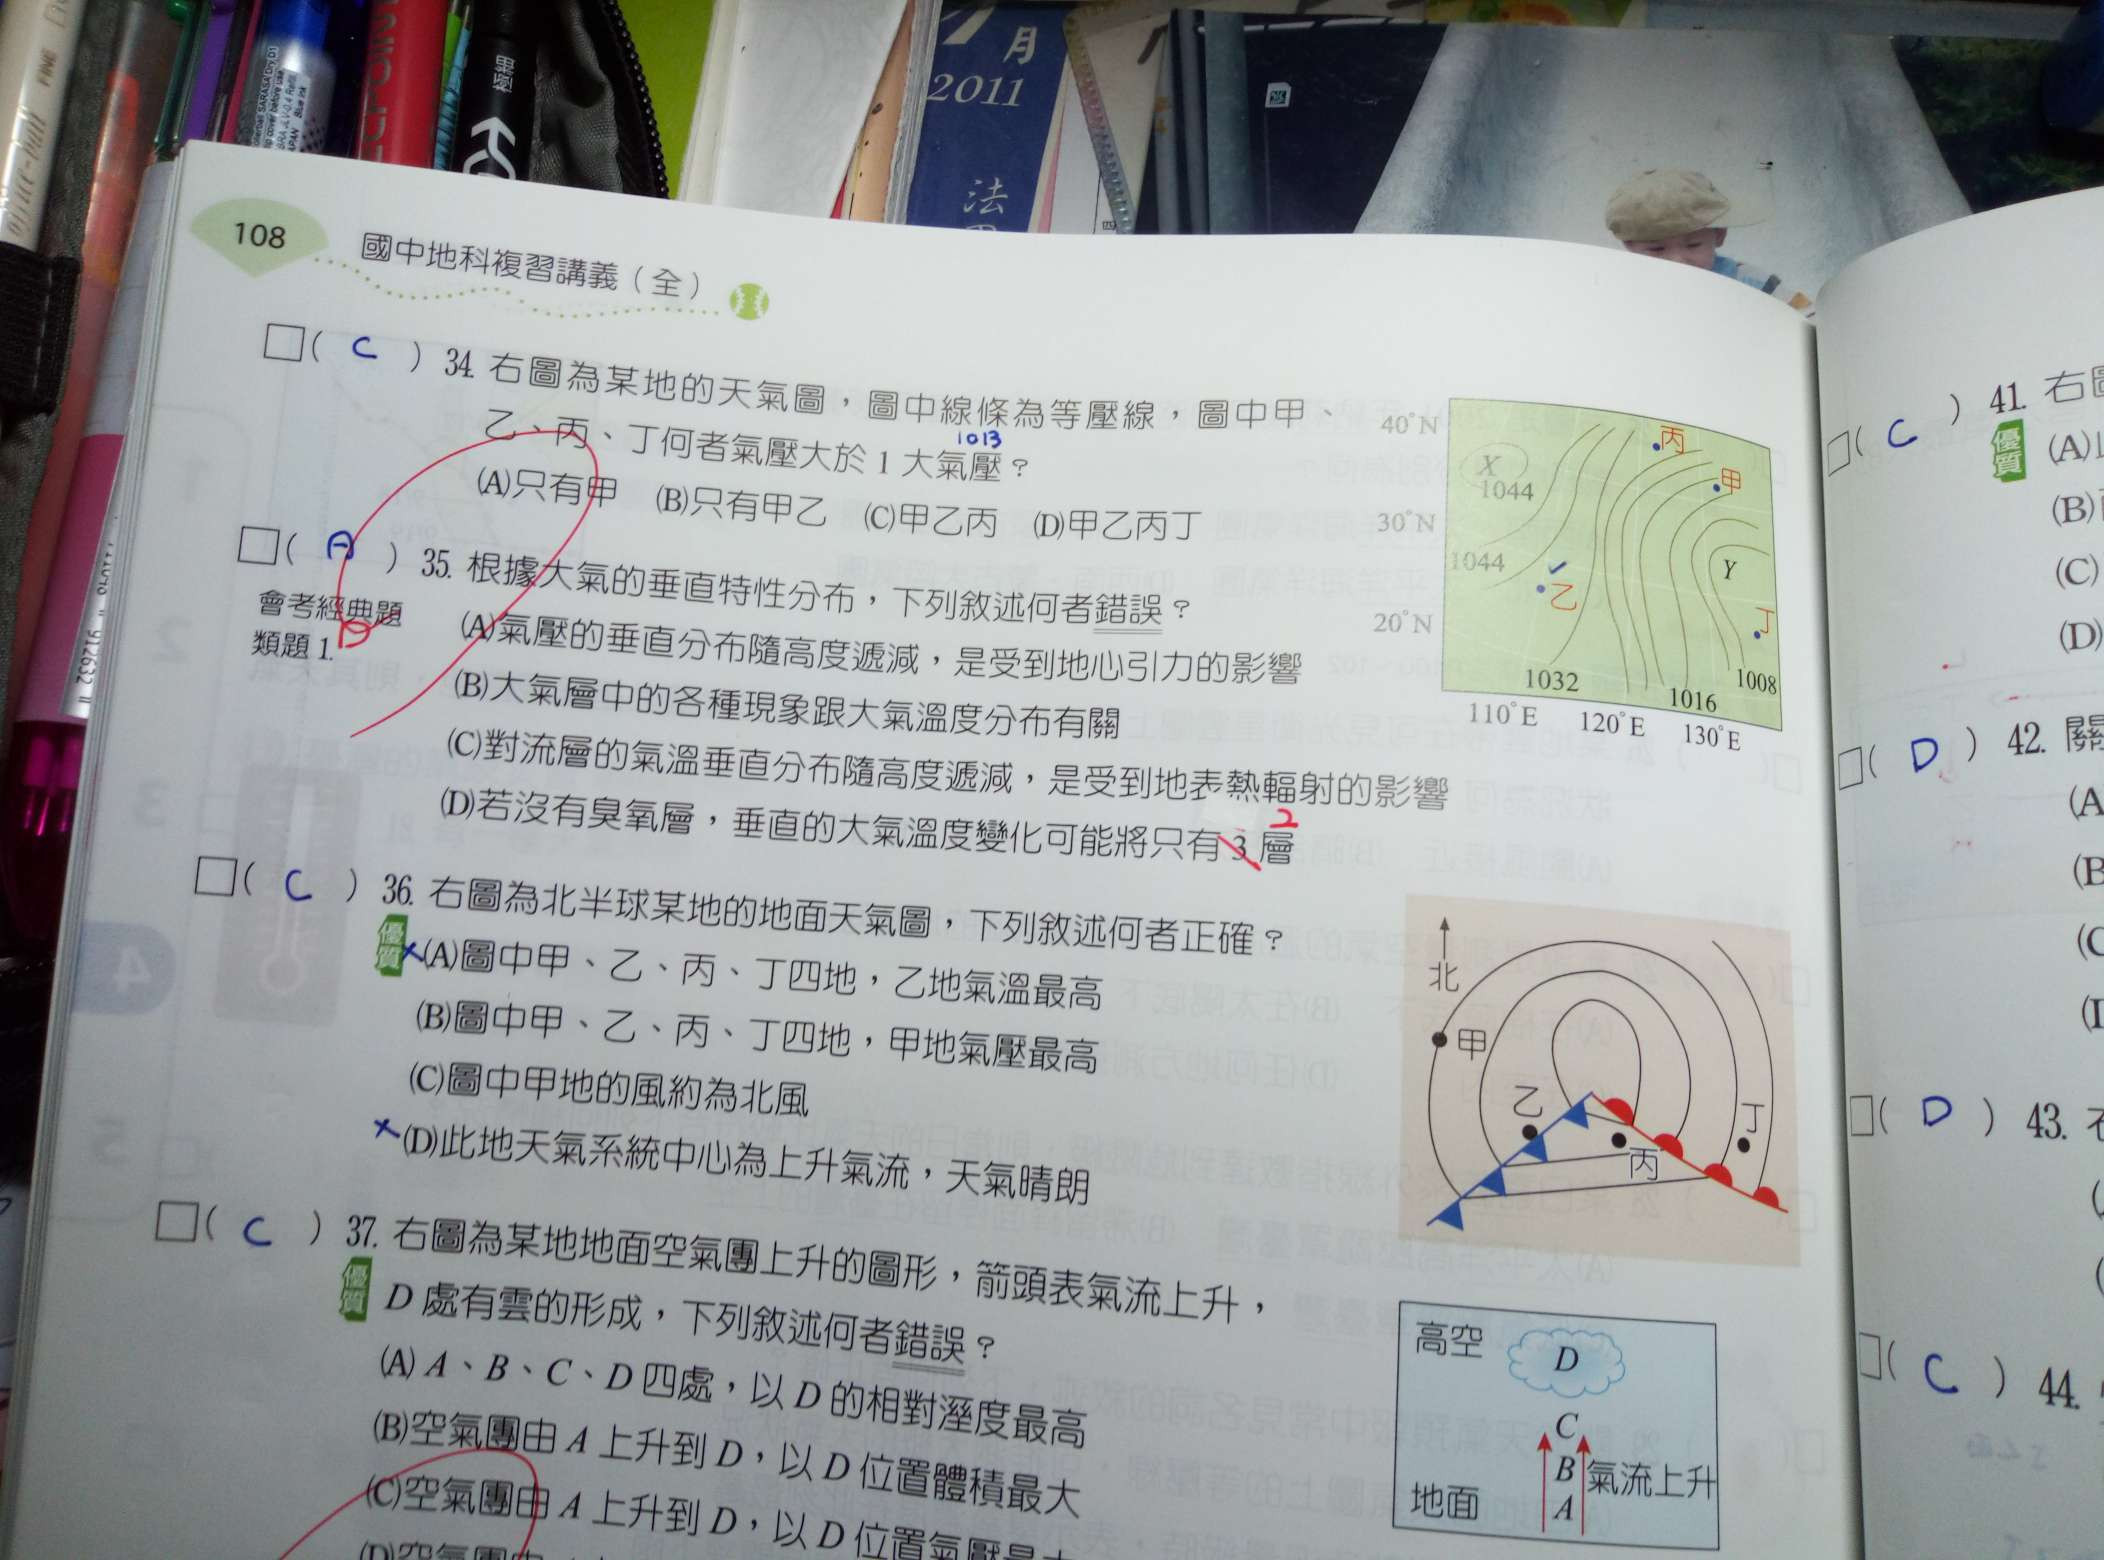 7月
2011
法
極細
108
國中地科複習講義（全）
□( C )34. 右圖為某地的天氣圖，圖中線條為等壓線，圖中甲、
乙、丙、丁何者氣壓大於 1 大氣壓？
1013
(A)只有甲 (B)只有甲乙 (C)甲乙丙 (D)甲乙丙丁
40°N
30°N
20°N
X
1044
1044
丙
甲
乙
Y
丁
1032
1016
1008
110°E 120°E 130°E
□( A )35. 根據大氣的垂直特性分布，下列敘述何者錯誤？
會考經典題
類題 1.
D
(A)氣壓的垂直分布隨高度遞減，是受到地心引力的影響
(B)大氣層中的各種現象跟大氣溫度分布有關
(C)對流層的氣溫垂直分布隨高度遞減，是受到地表熱輻射的影響
(D)若沒有臭氧層，垂直的大氣溫度變化可能將只有 3 層
2
□( C )36. 右圖為北半球某地的地面天氣圖，下列敘述何者正確？
優質
×(A)圖中甲、乙、丙、丁四地，乙地氣溫最高
(B)圖中甲、乙、丙、丁四地，甲地氣壓最高
(C)圖中甲地的風約為北風
×(D)此地天氣系統中心為上升氣流，天氣晴朗
北
甲
乙
丙
丁
□( C )37. 右圖為某地地面空氣團上升的圖形，箭頭表氣流上升，
優質
D 處有雲的形成，下列敘述何者錯誤？
(A) A、B、C、D 四處，以 D 的相對溼度最高
(B)空氣團由 A 上升到 D，以 D 位置體積最大
(C)空氣團由 A 上升到 D，以 D 位置氣壓最大
高空
D
C
B
A
氣流上升
地面
□( C )41. 右
優質
(A)
(B)
(C)
(D)
□( D )42. 關
(A
(B
(C
□( D )43.
□( C )44.